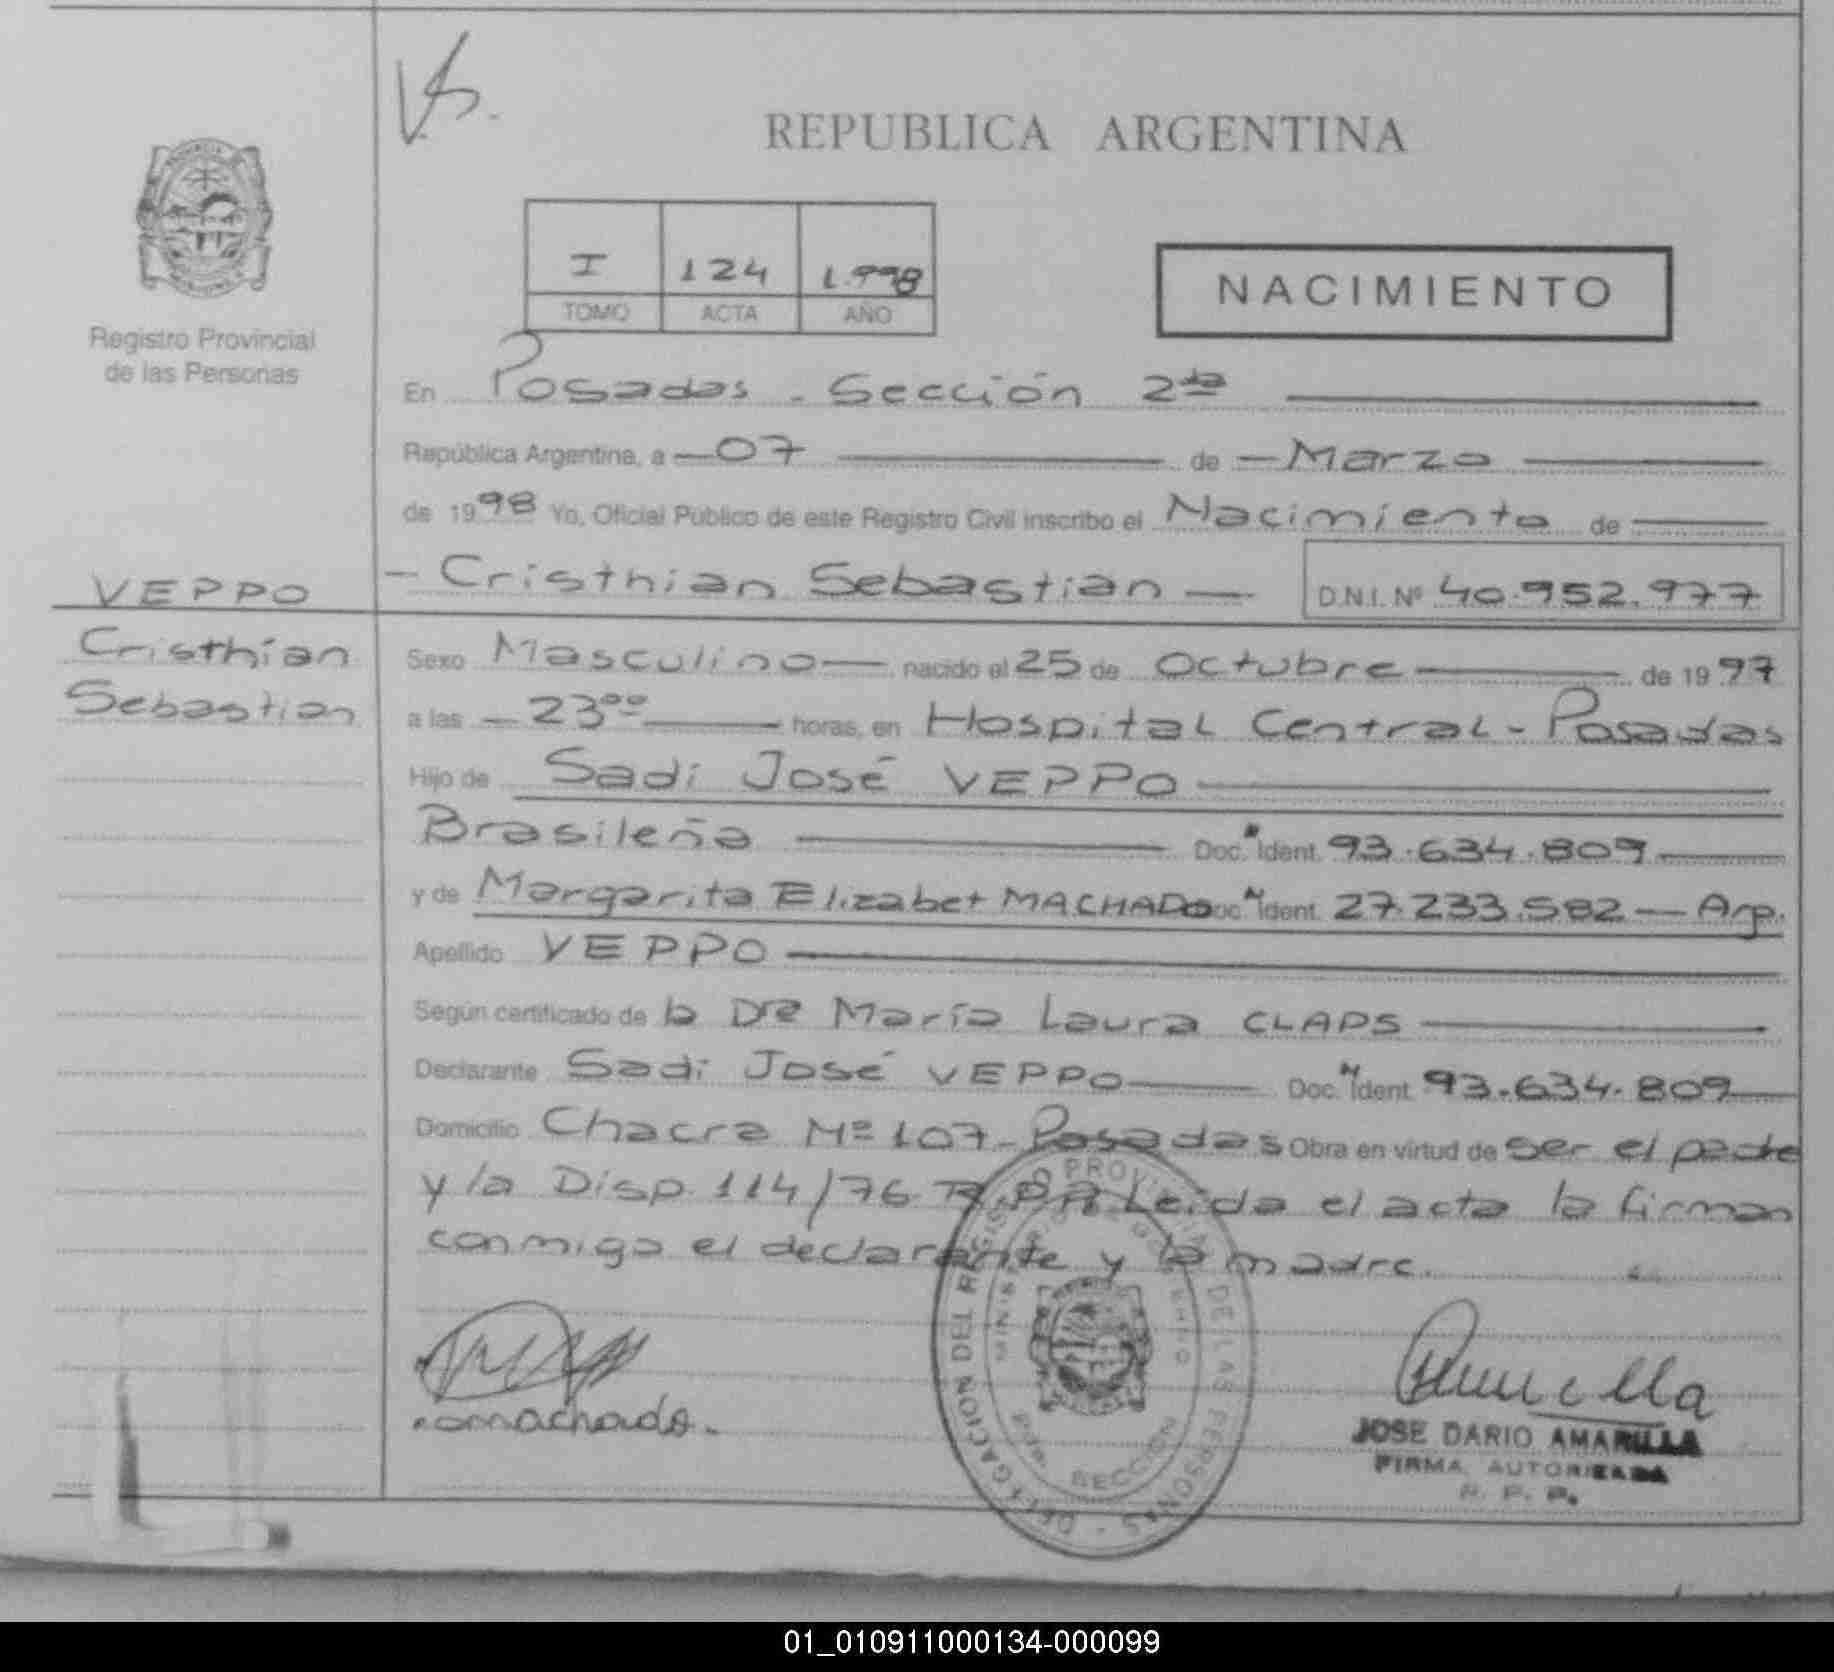 Vs.
REPUBLICA ARGENTINA
I 124 1.998
TOMO ACTA AÑO
NACIMIENTO
Registro Provincial
de las Personas
En Posadas - Sección 2da
República Argentina, a 07 de Marzo
de 1998 Yo, Oficial Público de este Registro Civil inscribo el Nacimiento de
VEPPO
Cristhian
Sebastian
Cristhian Sebastian D.N.I. Nº 40.952.977
Sexo Masculino nacido el 25 de Octubre de 1997
a las 23 00 horas, en Hospital Central - Posadas
Hijo de Sadi José VEPPO
Brasileña Doc. N Ident. 93.634.809
y de Margarita Elizabet MACHADO Doc. N Ident. 27.233.582 - Arg.
Apellido VEPPO
Según certificado de la Dra María Laura CLAPS
Declarante Sadi José VEPPO Doc. N Ident. 93.634.809
Domicilio Chacra Nº 107 - Posadas Obra en virtud de ser el padre
y la Disp. 114/76 R.P.P. Leída el acta la firman
conmigo el declarante y la madre.
machado.
DELEGACION DEL REGISTRO PROVINCIAL DE LAS PERSONAS
SECCION
JOSE DARIO AMARILLA
FIRMA AUTORIZADA
R. P. P.
01_010911000134-000099